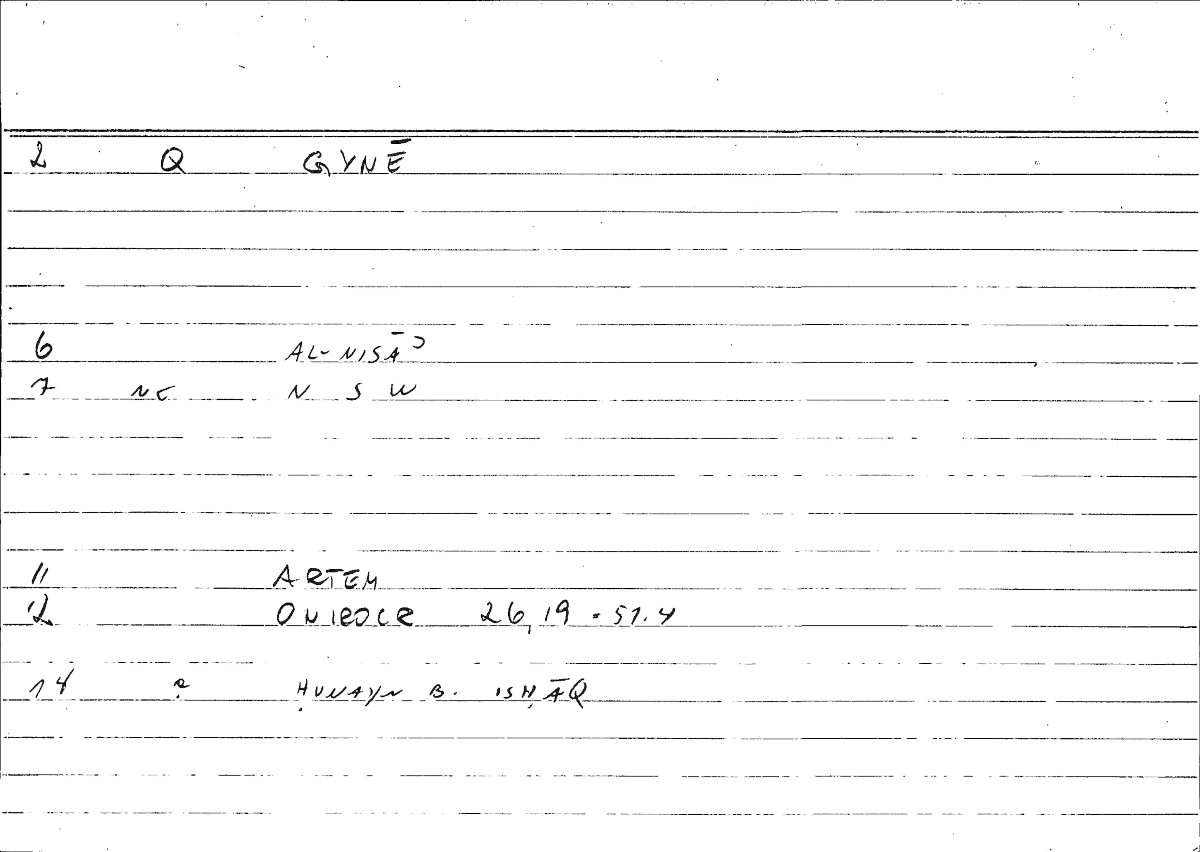 2 Q GYNĒ
6 AL-NISĀʾ
7 NE N S W
11 ARTEM
12 ONIROCR 26,19 - 51.4
14 ḤUNAYN B. ISḤĀQ